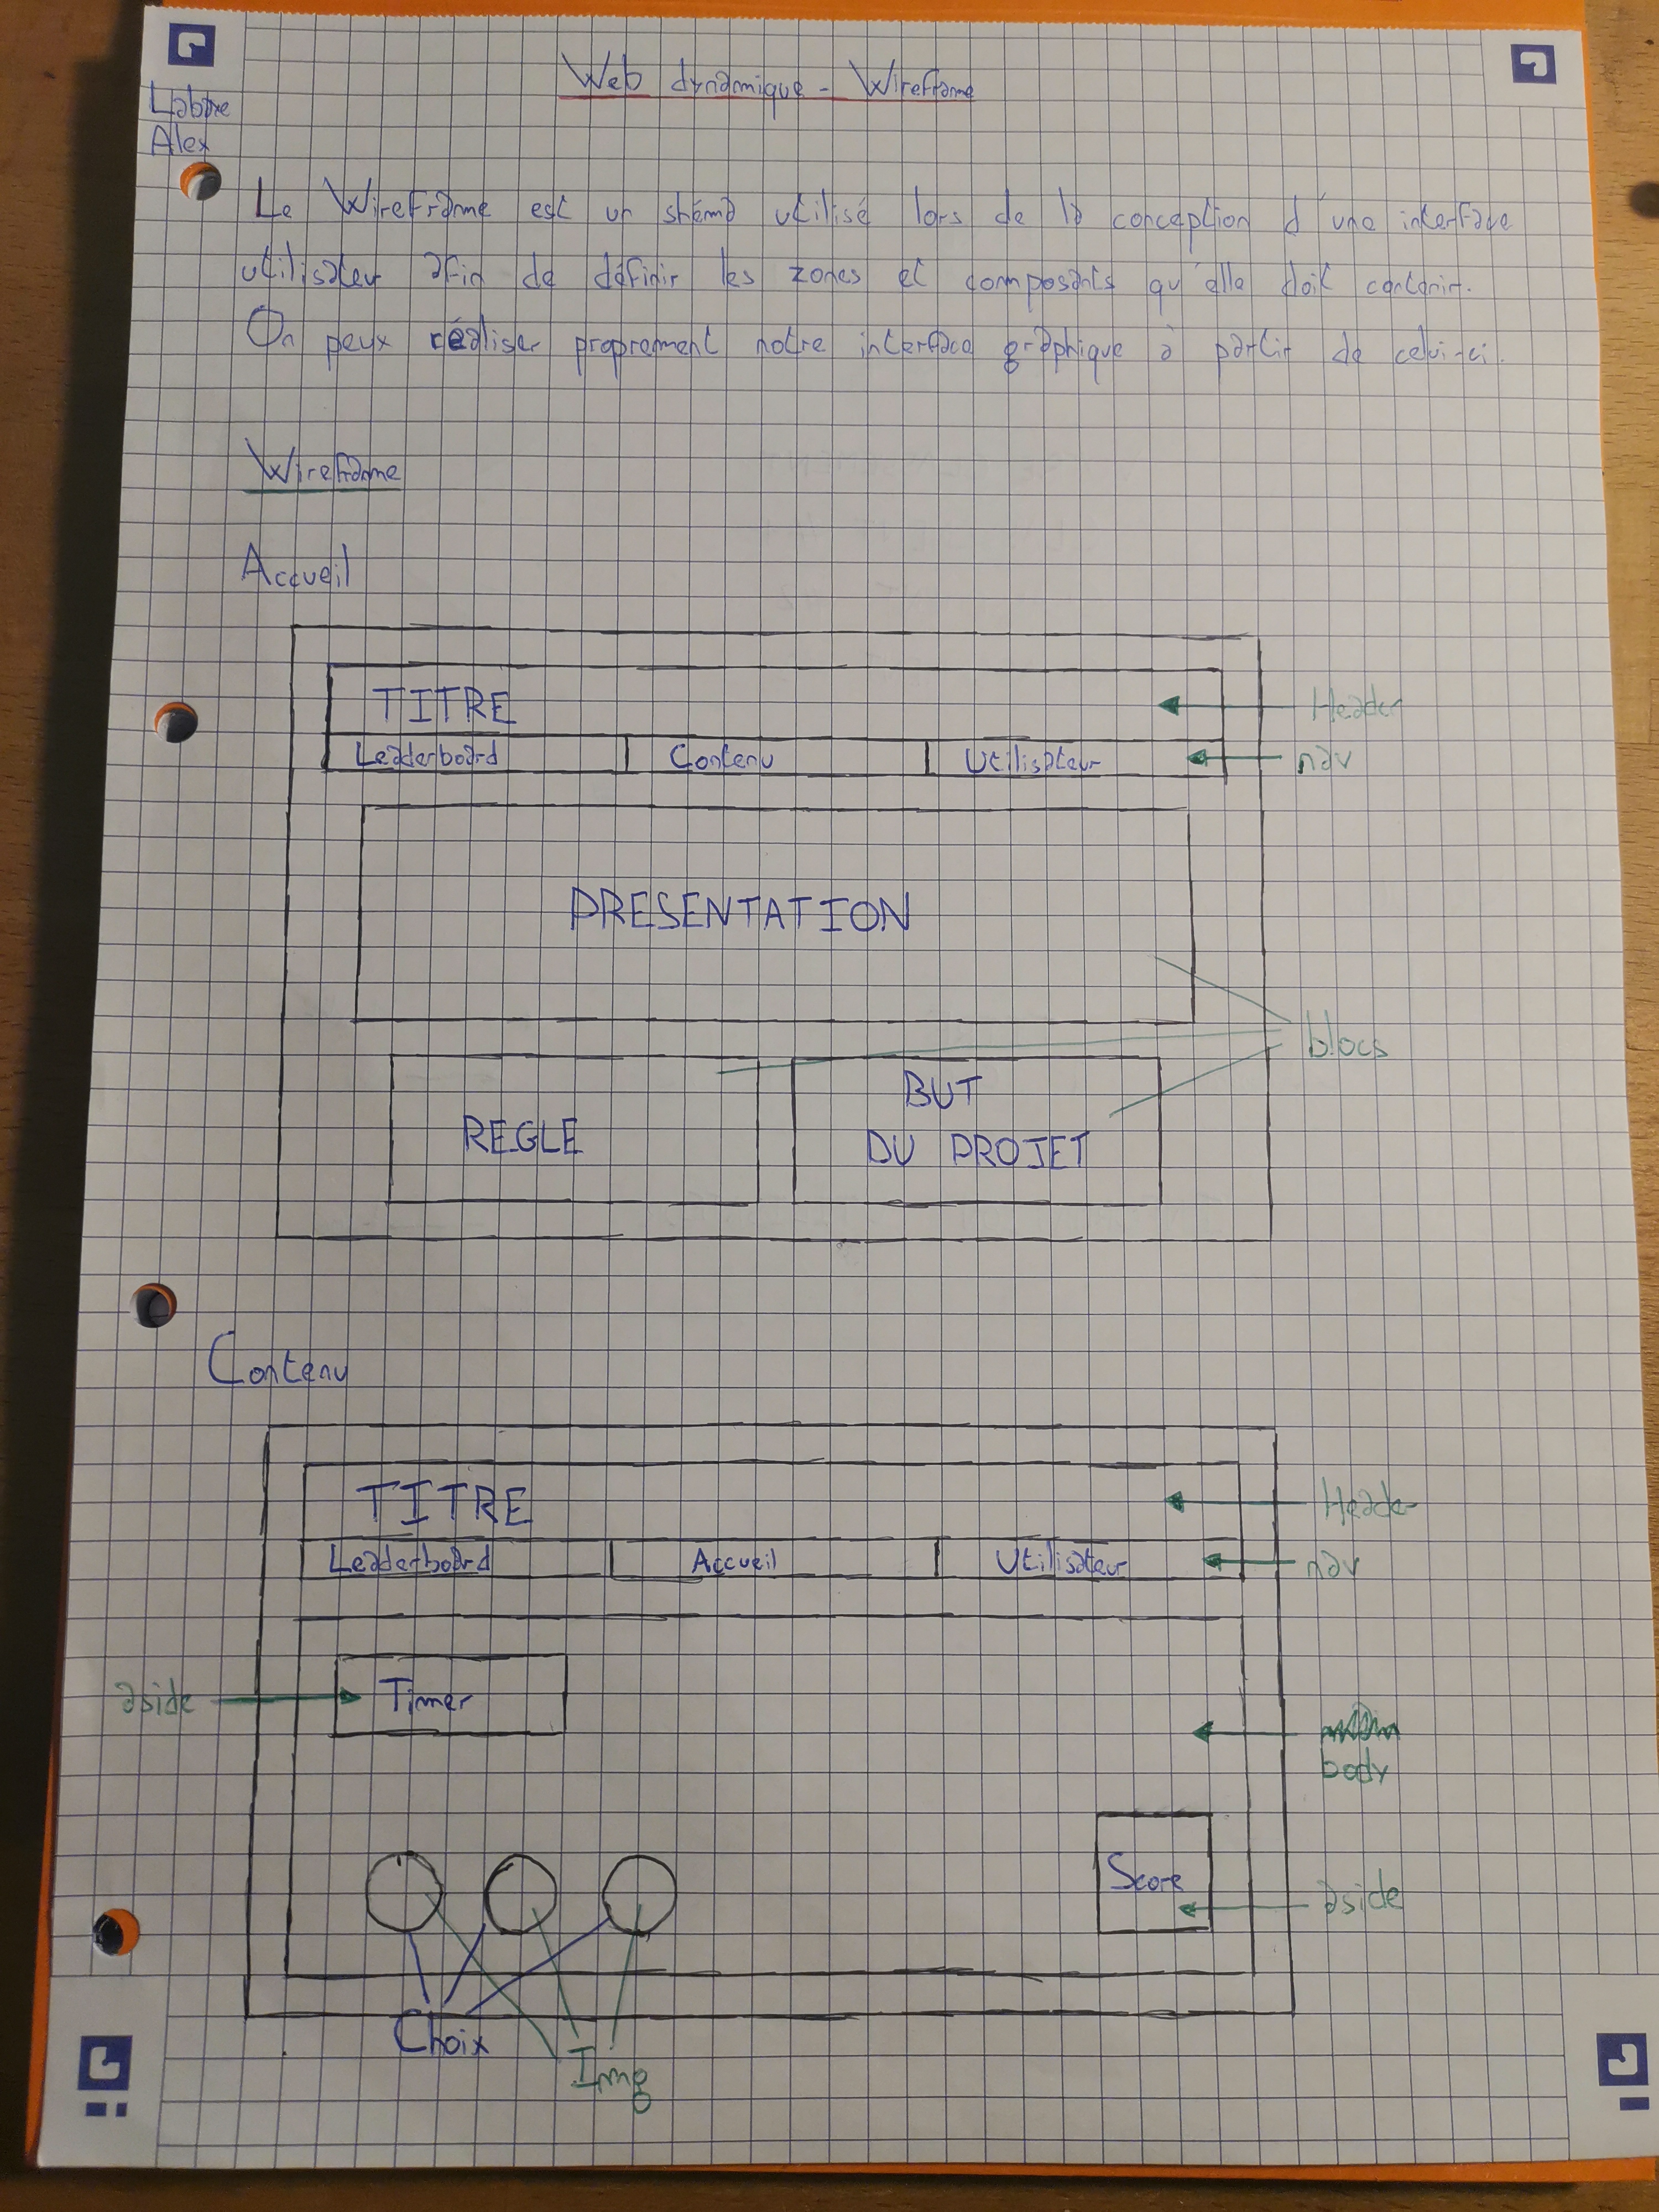 Web dynamique - Wireframe
Labore
Alex
Le Wireframe est un shéma utilisé lors de la conception d'une interface
utilisateur afin de définir les zones et composants qu'elle doit contenir.
On peux réaliser proprement notre interface graphique à partir de celui-ci.
Wireframe
Accueil
TITRE
Header
Leaderboard Contenu Utilisateur
nav
PRESENTATION
blocs
REGLE
BUT
DU PROJET
Contenu
TITRE
Header
Leaderboard Accueil Utilisateur
nav
aside
Timer
body
Score
aside
Choix
Img